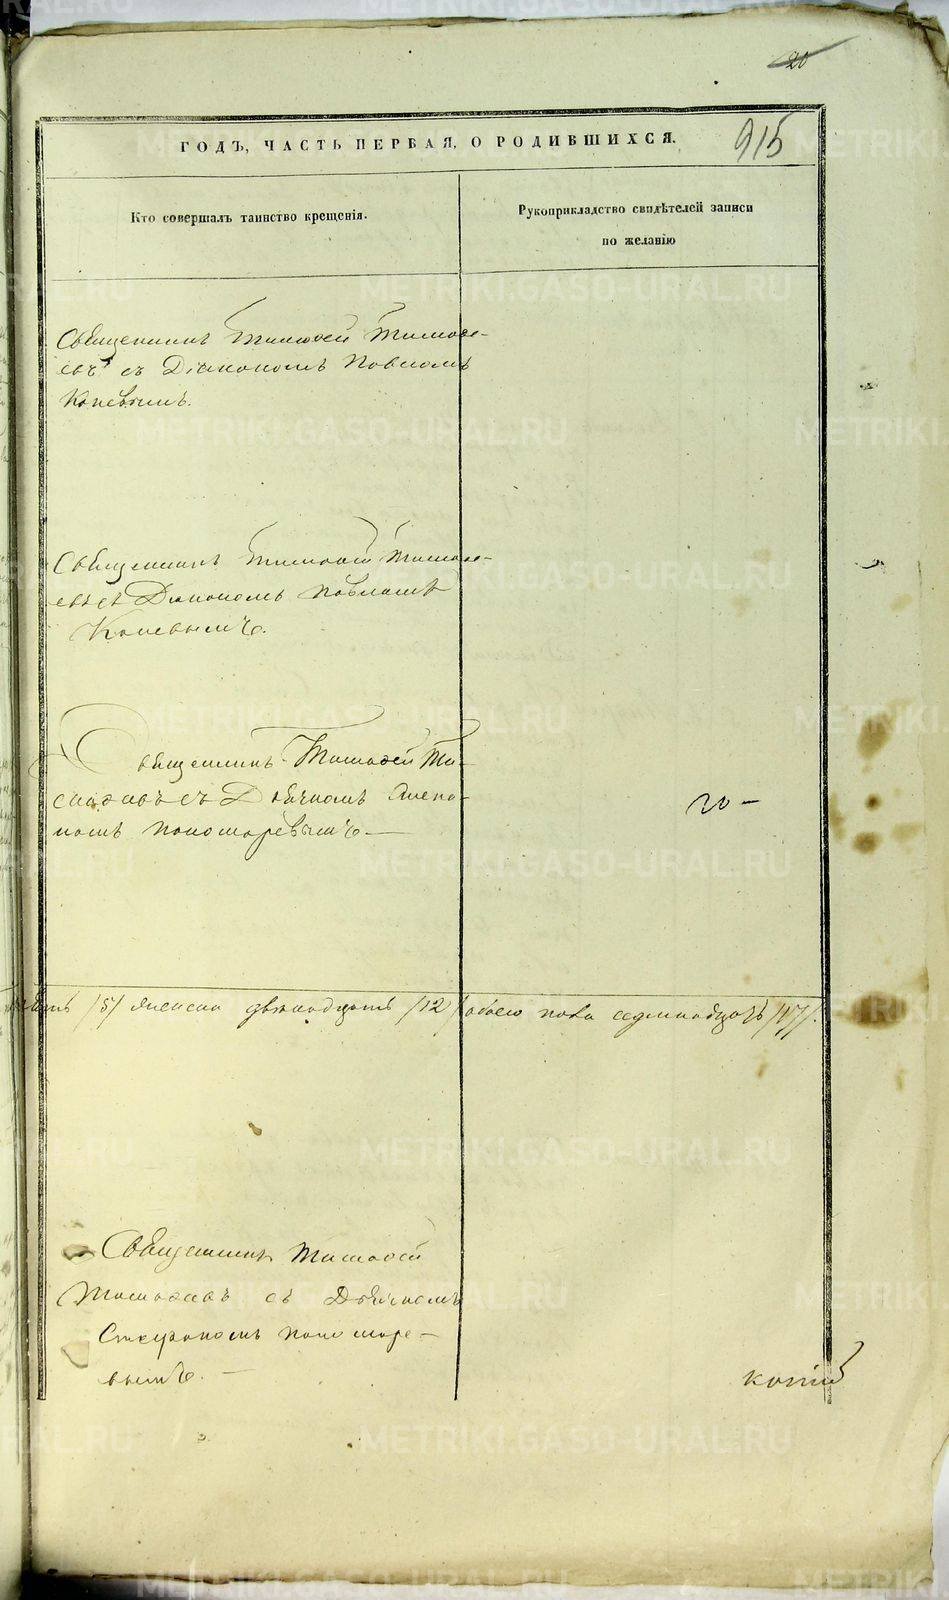 20
915
ГОДЪ, ЧАСТЬ ПЕРВАЯ, О РОДИВШИХСЯ.
Кто совершалъ таинство крещенія.
Рукоприкладство свидѣтелей записи
по желанію
Священникъ Тимофей Тимофе-
евъ съ Діакономъ Павломъ
Коневымъ.
Священникъ Тимофей Тимофе-
евъ съ Діакономъ Павломъ
Коневымъ.
Священникъ Тимофей Ти-
съ Дьячкомъ Степа-
номъ Пономаревымъ —
20 —
/5/ женска двенадцать /12/ обоего пола седмнадцать /17/.
Священникъ Тимофей
съ Дьячкомъ
Пономаре-
вымъ. —
копій
METRIKI.GASO-URAL.RU